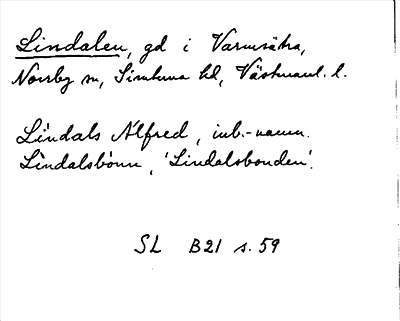 Lindalen, gd i Varmsätra,
Norrby sn, Simtuna hd, Västmanl. l.
Lindals Alfred, inb.-namn.
Lindalsbonn, 'Lindalsbonden'.
SL B21 s. 59